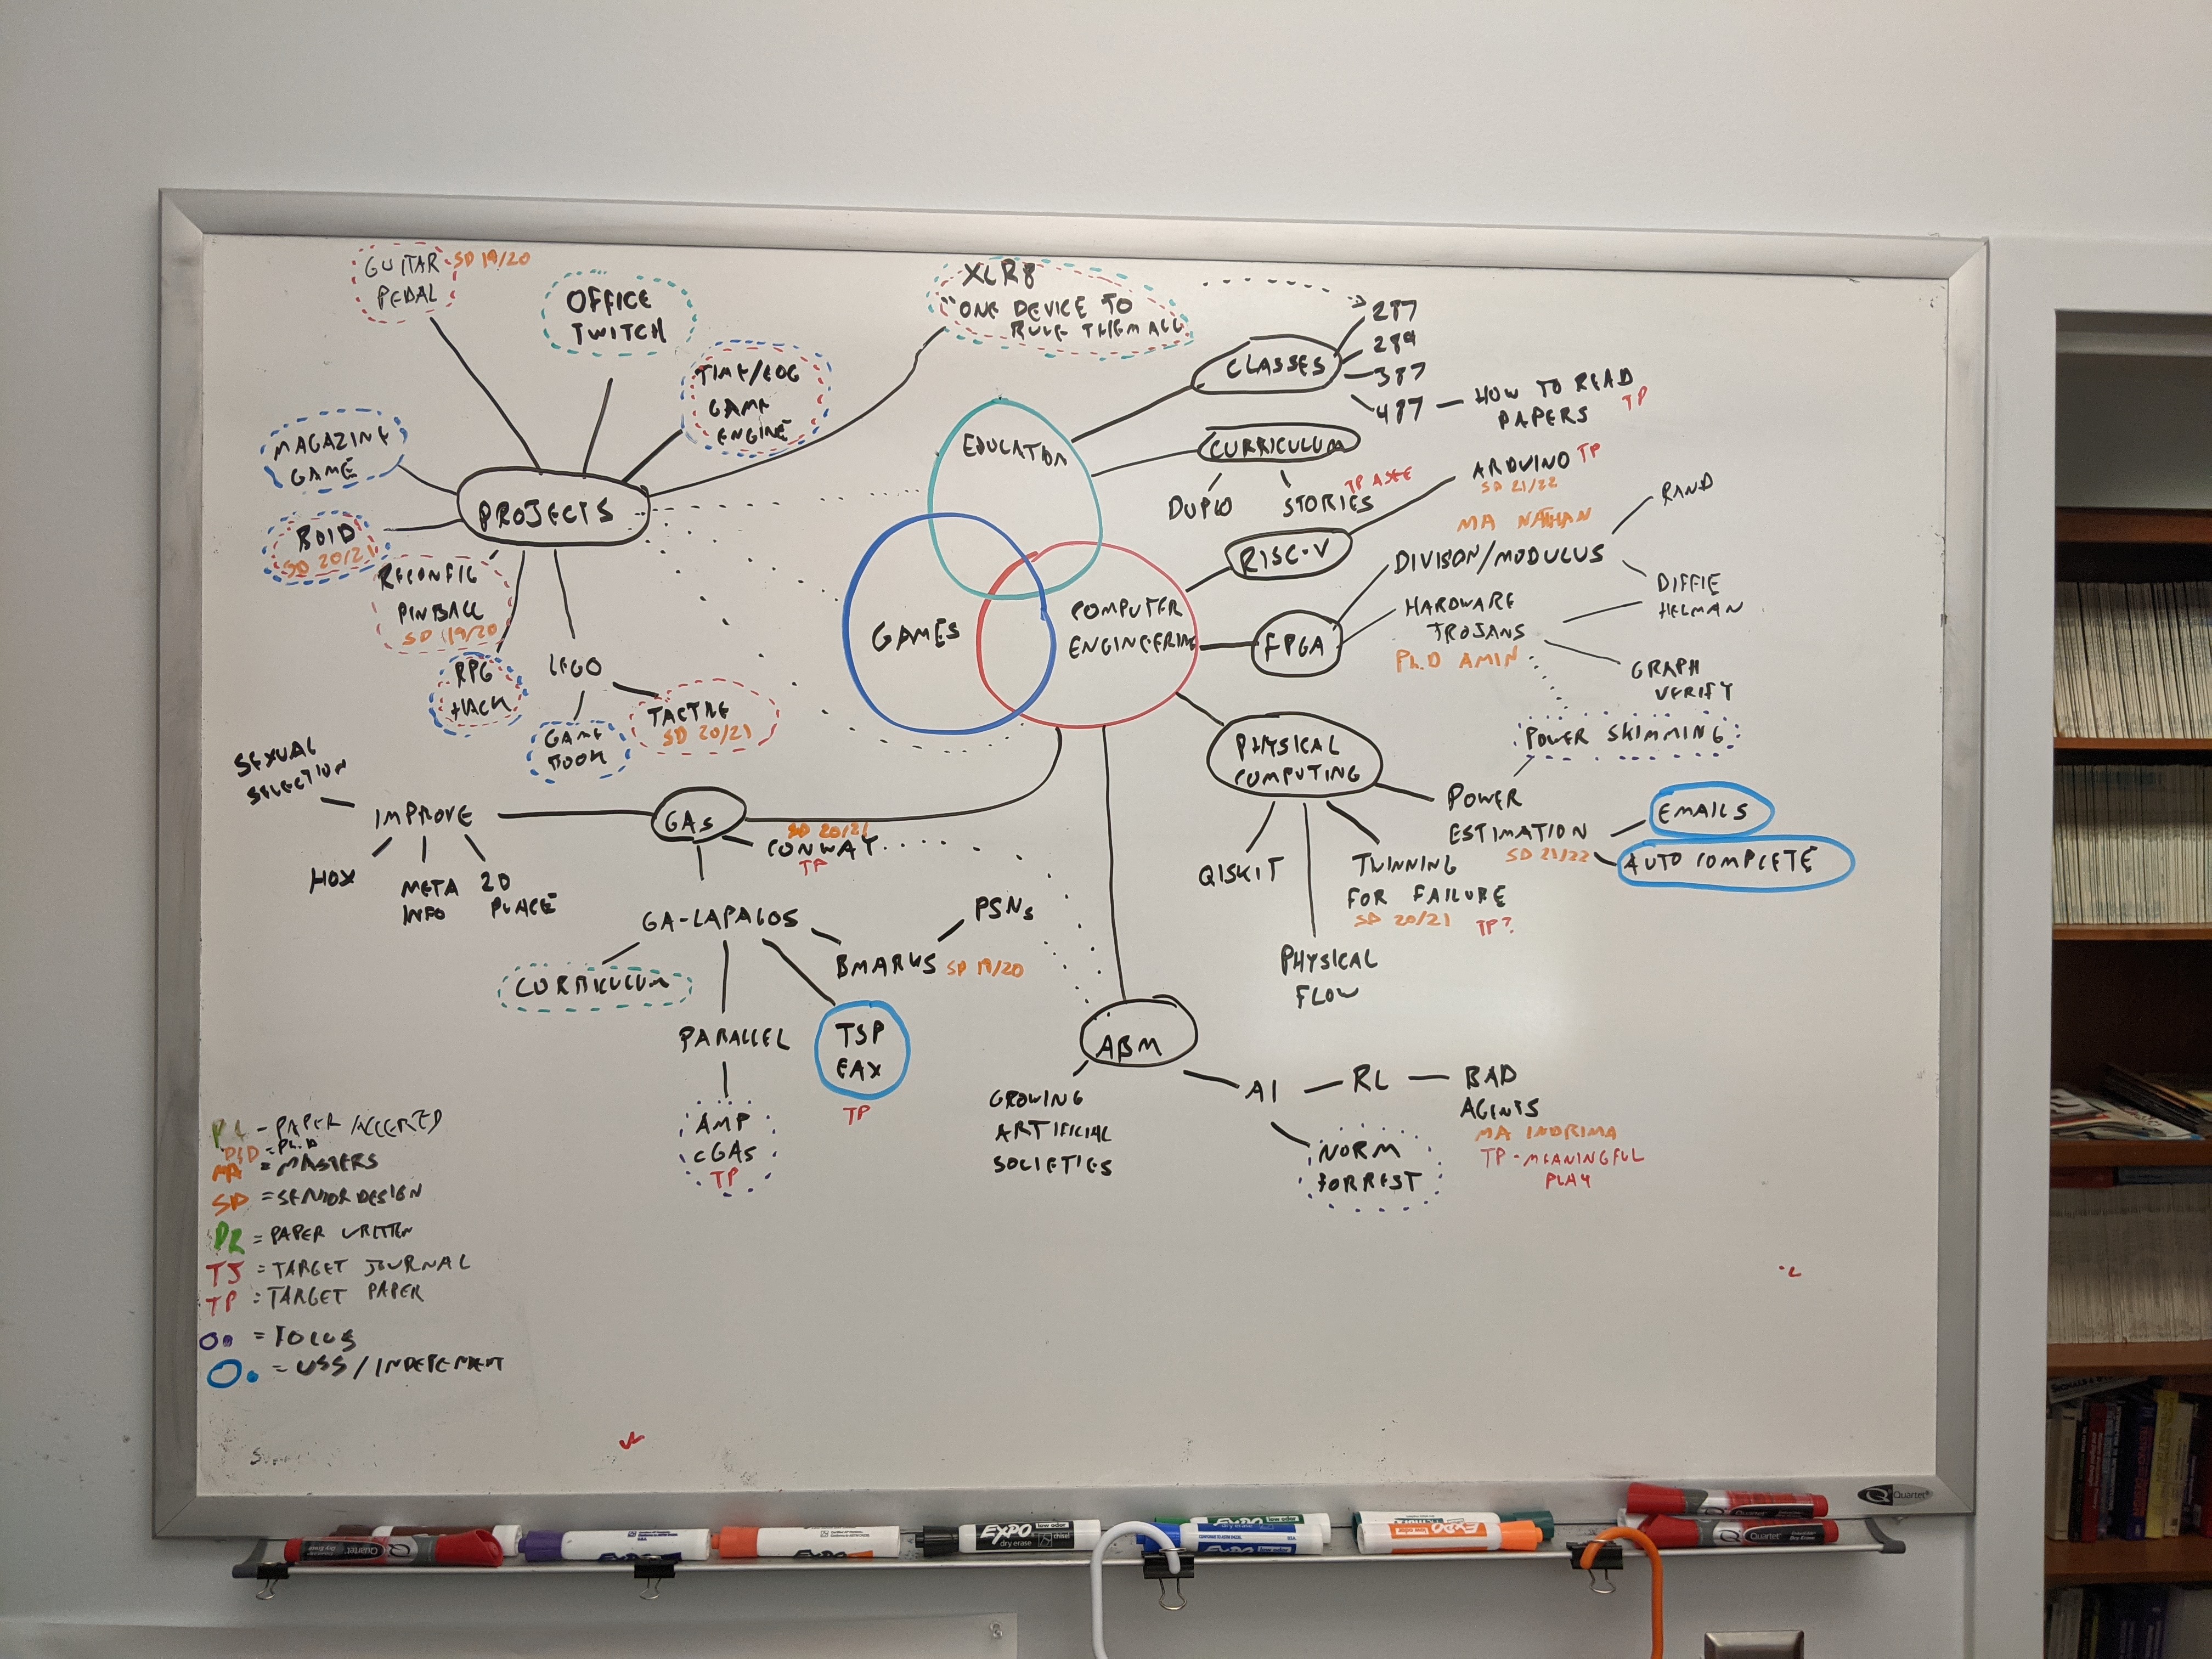 GUITAR
PEDAL
SD 19/20
OFFICE
TWITCH
XLR8
"ONE DEVICE TO
RULE THEM ALL
TIME/
GAME
ENGINE
MAGAZINE
GAME
PROJECTS
BOID
SD 20/21
RECONFIG
PINBALL
SD 19/20
RPG
HACK
LEGO
GAME
BOOK
SD 20/21
EDUCATION
GAMES
COMPUTER
ENGINEERING
CLASSES
287
289
387
487
HOW TO READ
PAPERS
TP
CURRICULUM
DUPLO
STORIES
TP ASEE
RISC-V
ARDUINO TP
SD 21/22
MA NATHAN
FPGA
DIVISON/MODULUS
RAND
HARDWARE
TROJANS
Ph.D AMIN
DIFFIE
HELMAN
GRAPH
VERIFY
POWER SKIMMING
PHYSICAL
COMPUTING
POWER
ESTIMATION
SD 21/22
EMAILS
AUTO COMPLETE
QISKIT
TWINNING
FOR FAILURE
SD 20/21
TP?
PHYSICAL
FLOW
SEXUAL
SELECTION
IMPROVE
HOX
META
INFO
2D
PLACE
GAs
SD 20/21
CONWAY
TP
GA-LAPAGOS
CURRICULUM
PARALLEL
AMP
cGAs
TP
TSP
EAX
TP
BMARKS SD 19/20
PSNs
ABM
GROWING
ARTIFICIAL
SOCIETIES
AI
RL
BAD
AGENTS
MA INDRIMA
TP-MEANINGFUL
PLAY
NORM
FORREST
- PAPER ACCEPTED
PhD = Ph.D
MA = MASTERS
SD = SENIOR DESIGN
= PAPER WRITTEN
TJ = TARGET JOURNAL
TP = TARGET PAPER
= FOCUS
= USS/INDEPENDENT
Quartet
EXPO
low odor
dry erase
chisel
EXPO
EXPO
Quartet
Quartet